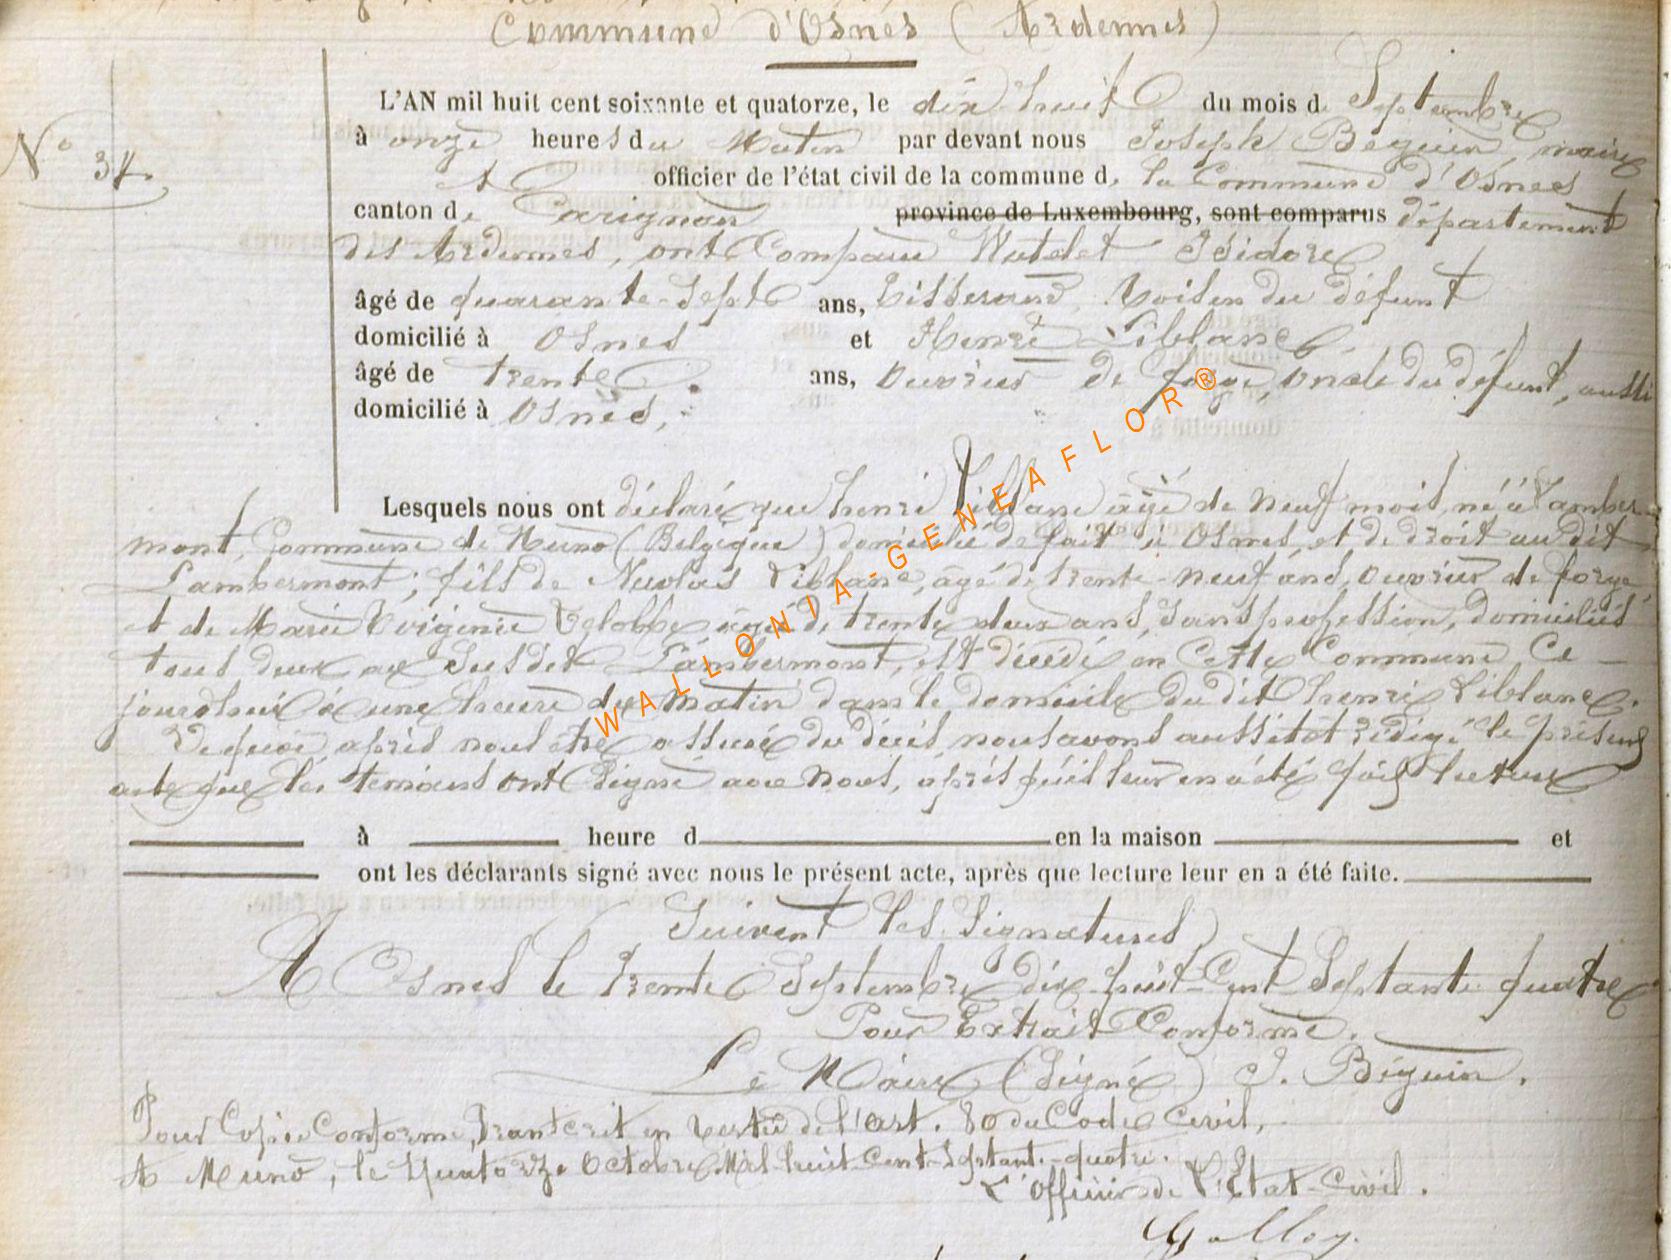 Commune d'Osnes (Ardennes)
N° 34.
L'AN mil huit cent soixante et quatorze, le dix huit du mois d. Septembre
à onze heures du Matin par devant nous Joseph Béguin, maire
officier de l'état civil de la commune d. la Commune d'Osnes
canton de Carignan province de Luxembourg, sont comparus département
des Ardennes, ont Comparu Watelet Isidore
âgé de quarante-sept ans, Tisserand, Voisin du défunt
domicilié à Osnes et Henri Liblanc
âgé de trente ans, Ouvrier de forge, oncle du défunt, aussi
domicilié à Osnes,
Lesquels nous ont déclaré que henri Liblanc âgé de neuf mois, né à Lamber-
mont, Commune de Muno (Belgique) domicilié de fait à Osnes, et de droit au dit
Lambermont; fils de Nicolas Liblanc, âgé de trente-neuf ans, Ouvrier de forge,
et de Marie Virginie âgée de trente deux ans, sans profession, domiciliés
tous deux au susdit Lambermont, est décédé en Cette Commune Ce
jourd'hui à une heure du matin dans le domicile du dit henri Liblanc.
De quoi, après nous être assuré du décès, nous avons aussitôt rédigé le présent
acte que les témoins ont Signé avec Nous, après qu'il leur en a été fait lecture
à heure d en la maison et
ont les déclarants signé avec nous le présent acte, après que lecture leur en a été faite.
Suivent les Signatures
A Osnes le trente Septembre dix-huit-Cent Septante quatre
Pour Extrait Conforme.
Le Maire (Signé) J. Béguin.
Pour Copie Conforme, Transcrit en Vertu de l'art. 80 du Code Civil,
A Muno, le Quatorze Octobre Mil huit Cent-Septante-quatre.
L'Officier de l'Etat-Civil.
Golloy.
WALLONIA-GENEAFLOR®